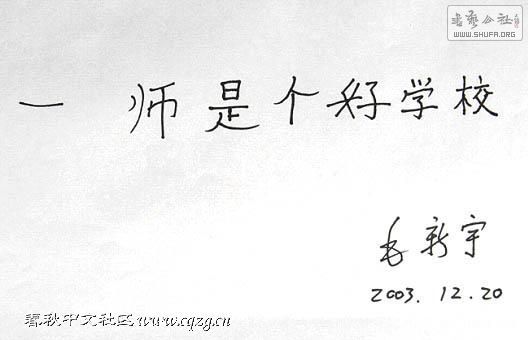 书艺公社
WWW.SHUFA.ORG
一 师是个好学校
毛新宇
2003.12.20
春秋中文社区www.cqzg.cn